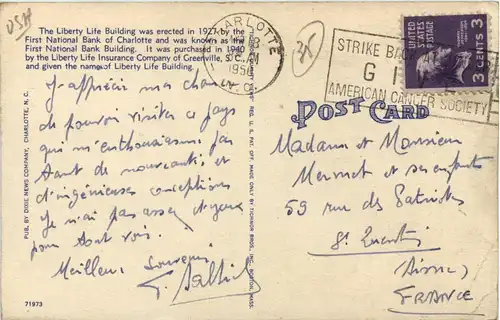 USA
The Liberty Life Building was erected in 1927 by the
First National Bank of Charlotte and was known as the
First National Bank Building. It was purchased in 1940
by the Liberty Life Insurance Company of Greenville, S.C.
and given the name of Liberty Life Building.
CHARLOTTE
1950
N. C.
STRIKE BACK
GIVE
AMERICAN CANCER SOCIETY
UNITED STATES
POSTAGE
3 CENTS 3
POST CARD
J'apprécie ma chance
de pouvoir visiter ce pays
qui m'enthousiasme par
tant de nouveautés et
d'ingénieuses conceptions
Je n'ai pas assez d'yeux
pour tout voir.
Meilleur souvenir
Madame et Monsieur
Mermet et ses enfants
59 rue des Patriotes
St Quentin
(Aisne)
FRANCE
PUB. BY DIXIE NEWS COMPANY, CHARLOTTE, N. C.
71973